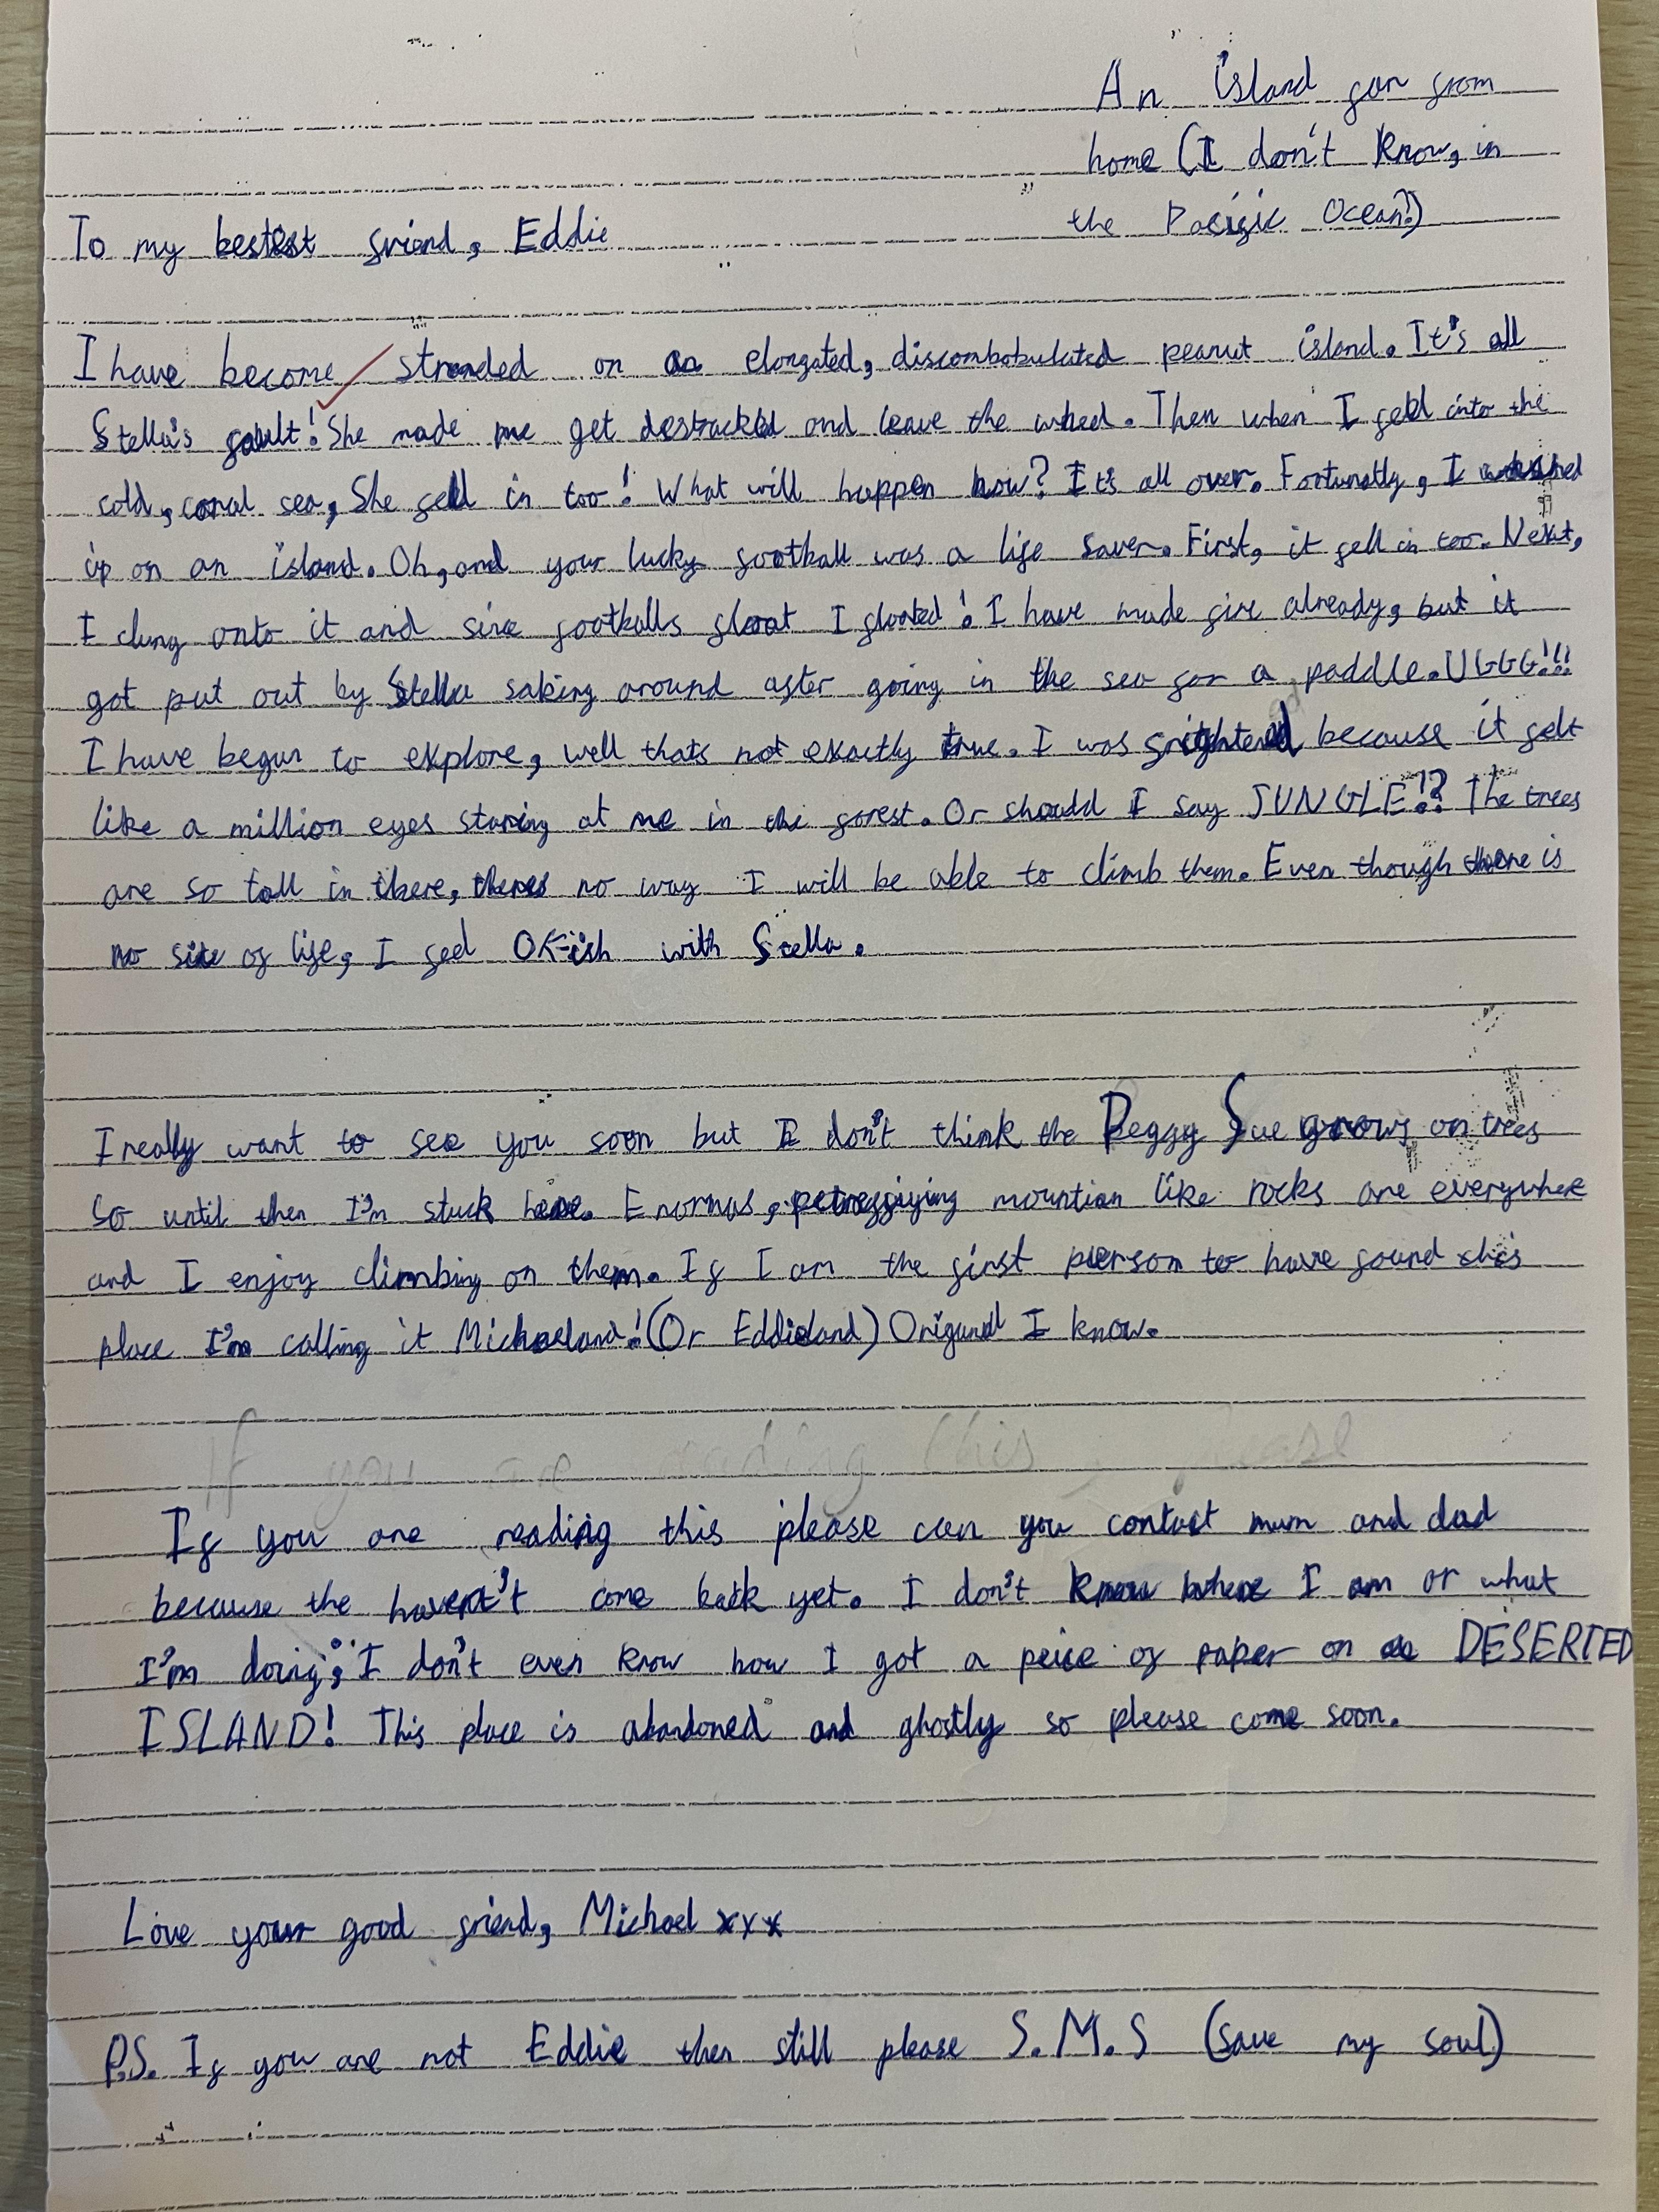 An island far from
home (I don't know, in
the Pacific Ocean?)
To my bestest friend, Eddie
I have become stranded on an elongated, discombobulated peanut island. It's all
Stella's fault! She made me get destracted and leave the wheel. Then when I fell into the
cold, coral sea, She fell in too! What will happen now? It's all over. Fortunatly, I washed
up on an island. Oh, and your lucky football was a life saver. First, it fell in too. Next,
I clung onto it and sinse footballs float I floated! I have made fire already, but it
got put out by Stella saking around after going in the sea for a paddle. UGGG!!!
I have begun to explore, well thats not exactly true. I was frightened because it felt
like a million eyes staring at me in the forest. Or should I say JUNGLE!? The trees
are so tall in there, theres no way I will be able to climb them. Even though there is
no site of life, I feel OK-ish with Stella.
I really want to see you soon but I don't think the Peggy Sue grows on trees
so until then I'm stuck here. Enormus, petreffiying mountian like rocks are everywhere
and I enjoy climbing on them. If I am the first person to have found this
place I'm calling it Michaeland! (Or Eddieland) Origunal I know.
If you are reading this, please
If you are reading this please can you contact mum and dad
because the haven't come back yet. I don't know where I am or what
I'm doing; I don't even know how I got a peice of paper on a DESERTED
ISLAND! This place is abandoned and ghostly so please come soon.
Love your good friend, Michael xxx
P.S. If you are not Eddie then still please S.M.S (save my soul)